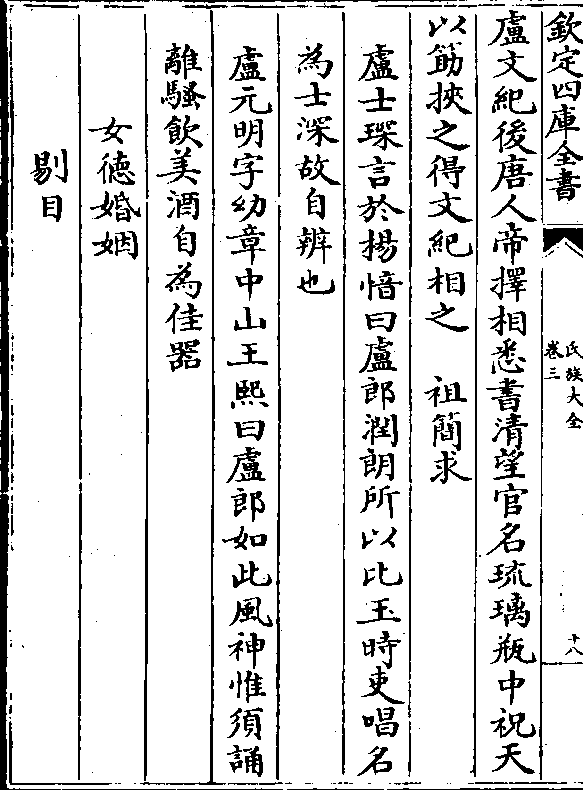 欽定四庫全書
氏族大全
卷三
十八
盧文紀後唐人帝擇相悉書清望官名琉璃瓶中祝天
以筯挾之得文紀相之 祖簡求
盧士琛言於楊愔曰盧郎潤朗所以比玉時吏唱名
為士深故自辨也
盧元明字幼章中山王熙曰盧郎如此風神惟須誦
離騷飲美酒自為佳器
女徳婚姻
剔目